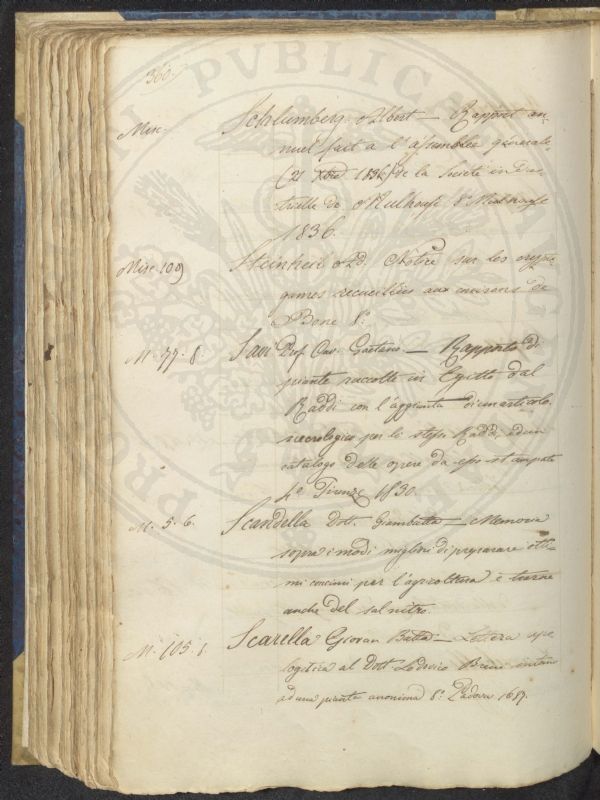 360.
Misc. Schlumberg. Albert — Rapport an-
nuel fait a l'assemblée générale
(21 Xbre 1836) de la Societé indus-
trielle de Mulhouse 8° Mulhouse
1836.
Misc. 109 Steinheil Ad. Notice sur les crypto-
games recueillies aux environs de
Bone 8°
M. 77. 8. Savi Prof. Cav. Gaetano — Rapporto di
piante raccolte in Egitto dal
Raddi con l'aggiunta di un articolo
necrologico per lo stesso Raddi, ed un
catalogo delle opere da esso stampate
4° Firenze 1830.
M. 5. 6. Scandella Dott. Giambatta — Memoria
sopra i modi migliori di preparare otti-
mi concimi per l'agricoltura e trarne
anche del salnitro.
M. 105. 1. Scarella Giovan Batta — Lettera apo-
logetica al Dott. Lodovico intorno
ad una pianta anonima 8° Padova 1687.